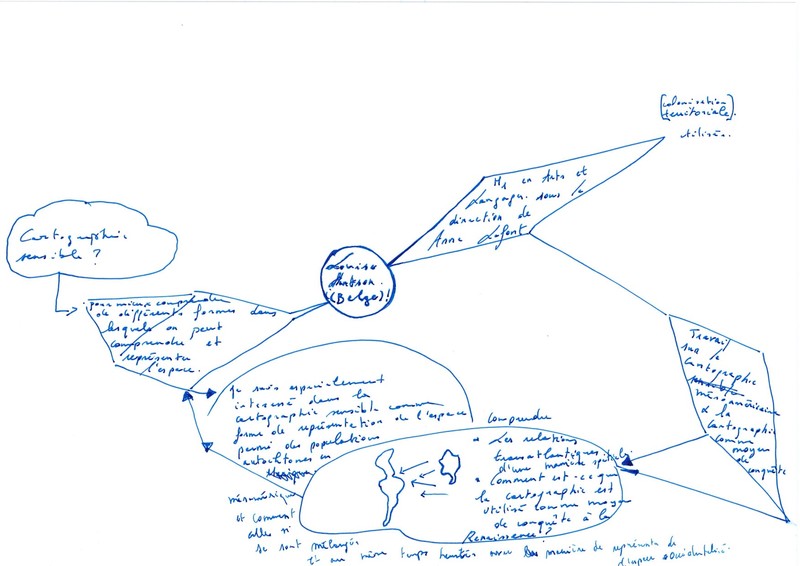 [colonisation
territoriale].
utilisée.
M1 en Arts et
Langages. sous la
direction de
Anne Lafont
Cartographie
sensible ?
Louise
(Belge)!
pour mieux comprendre
de différentes formes dans
lesquels on peut
comprendre et
représenter
l'espace.
Travail
sur la
cartographie
mésoaméricaine
& la
cartographie
comme
moyen
de
conquête
Je suis especialement
interesé dans la
cartographie sensible comme
forme de représentation de l'espace
parmi des populations
autochtones en
mésoamérique
et comment
elles si
se sont mélangés
Et au même temps avec manière de
comprendre
• Les relations
transatlantiques
d'une manière spatiale.
• Comment est-ce que
la cartographie est
utilisé comme moyen
de conquête à la
Renaissance ?